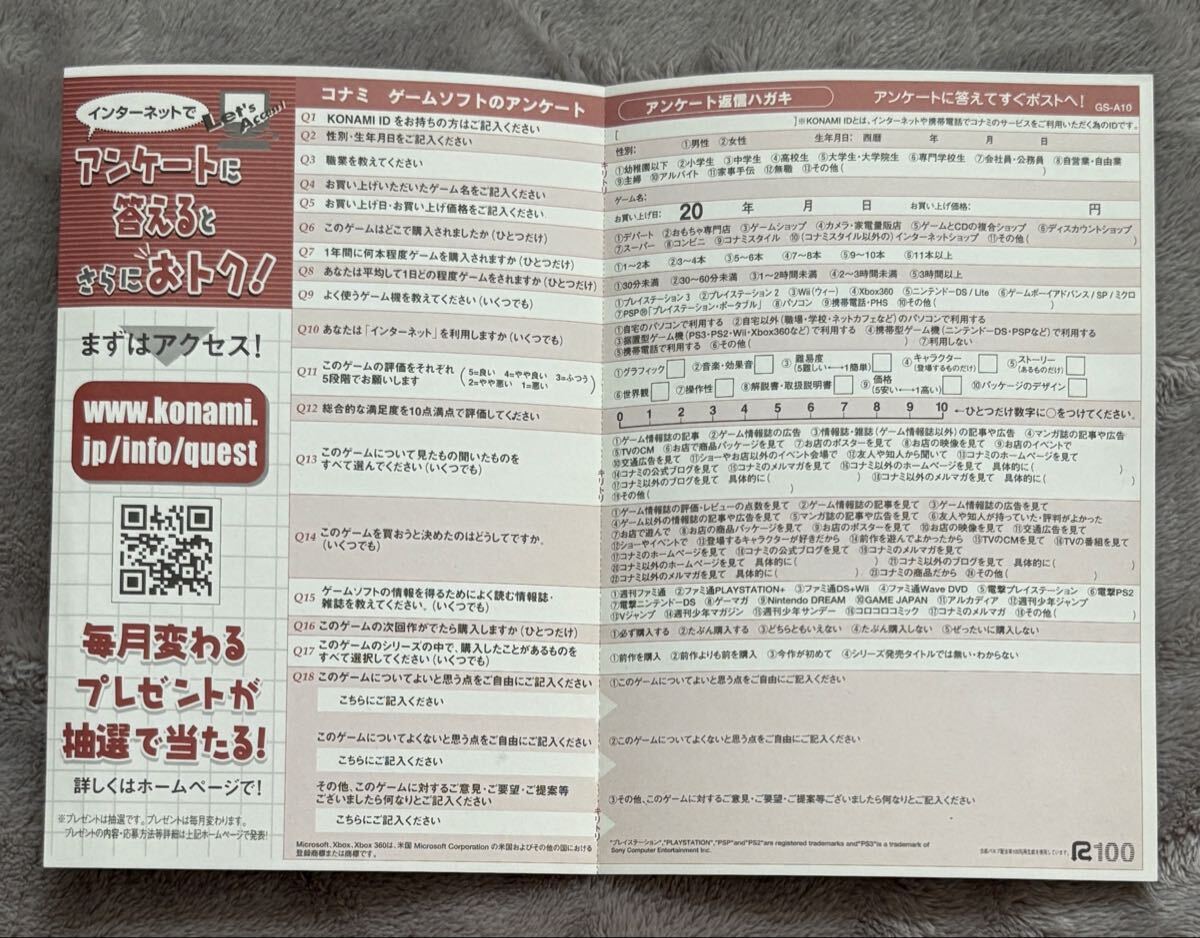 インターネットで
Let's
Access!
アンケートに
答えると
さらにおトク!
まずはアクセス!
www.konami.
jp/info/quest
毎月変わる
プレゼントが
抽選で当たる!
詳しくはホームページで!
※プレゼントは抽選です。プレゼントは毎月変わります。
プレゼントの内容・応募方法等詳細は上記ホームページで発表!
コナミ ゲームソフトのアンケート
Q1 KONAMI IDをお持ちの方はご記入ください
Q2 性別・生年月日をご記入ください
Q3 職業を教えてください
Q4 お買い上げいただいたゲーム名をご記入ください
Q5 お買い上げ日・お買い上げ価格をご記入ください
Q6 このゲームはどこで購入されましたか(ひとつだけ)
Q7 1年間に何本程度ゲームを購入されますか(ひとつだけ)
Q8 あなたは平均して1日どの程度ゲームをされますか(ひとつだけ)
Q9 よく使うゲーム機を教えてください(いくつでも)
Q10 あなたは「インターネット」を利用しますか(いくつでも)
Q11 このゲームの評価をそれぞれ
5段階でお願いします
(5=良い 4=やや良い 3=ふつう
2=やや悪い 1=悪い)
Q12 総合的な満足度を10点満点で評価してください
Q13 このゲームについて見たもの聞いたものを
すべて選んでください(いくつでも)
Q14 このゲームを買おうと決めたのはどうしてですか。
(いくつでも)
Q15 ゲームソフトの情報を得るためによく読む情報誌・
雑誌を教えてください。(いくつでも)
Q16 このゲームの次回作がでたら購入しますか(ひとつだけ)
Q17 このゲームのシリーズの中で、購入したことがあるものを
すべて選択してください(いくつでも)
Q18 このゲームについてよいと思う点をご自由にご記入ください
こちらにご記入ください
このゲームについてよくないと思う点をご自由にご記入ください
こちらにご記入ください
その他、このゲームに対するご意見・ご要望・ご提案等
ございましたら何なりとご記入ください
こちらにご記入ください
Microsoft、Xbox、Xbox 360は、米国 Microsoft Corporation の米国およびその他の国における
登録商標または商標です。
キリトリ
キリトリ
キリトリ
アンケート返信ハガキ
アンケートに答えてすぐポストへ!
GS-A10
[ ]※KONAMI IDとは、インターネットや携帯電話でコナミのサービスをご利用いただく為のIDです。
性別: ①男性 ②女性 生年月日: 西暦 年 月 日
①幼稚園以下 ②小学生 ③中学生 ④高校生 ⑤大学生・大学院生 ⑥専門学校生 ⑦会社員・公務員 ⑧自営業・自由業
⑨主婦 ⑩アルバイト ⑪家事手伝 ⑫無職 ⑬その他( )
ゲーム名:
お買い上げ日: 20 年 月 日 お買い上げ価格: 円
①デパート ②おもちゃ専門店 ③ゲームショップ ④カメラ・家電量販店 ⑤ゲームとCDの複合ショップ ⑥ディスカウントショップ
⑦スーパー ⑧コンビニ ⑨コナミスタイル ⑩(コナミスタイル以外の)インターネットショップ ⑪その他( )
①1~2本 ②3~4本 ③5~6本 ④7~8本 ⑤9~10本 ⑥11本以上
①30分未満 ②30~60分未満 ③1~2時間未満 ④2~3時間未満 ⑤3時間以上
①プレイステーション 3 ②プレイステーション 2 ③Wii(ウィー) ④Xbox360 ⑤ニンテンドーDS / Lite ⑥ゲームボーイアドバンス / SP / ミクロ
⑦PSP®「プレイステーション・ポータブル」 ⑧パソコン ⑨携帯電話・PHS ⑩その他( )
①自宅のパソコンで利用する ②自宅以外(職場・学校・ネットカフェなど)のパソコンで利用する
③据置型ゲーム機(PS3・PS2・Wii・Xbox360など)で利用する ④携帯型ゲーム機(ニンテンドーDS・PSPなど)で利用する
⑤携帯電話で利用する ⑥その他( ) ⑦利用しない
①グラフィック ②音楽・効果音 ③難易度
(5難しい←→1簡単) ④キャラクター
(登場するものだけ) ⑤ストーリー
(あるものだけ)
⑥世界観 ⑦操作性 ⑧解説書・取扱説明書 ⑨価格
(5安い←→1高い) ⑩パッケージのデザイン
0 1 2 3 4 5 6 7 8 9 10 ←ひとつだけ数字に○をつけてください。
①ゲーム情報誌の記事 ②ゲーム情報誌の広告 ③情報誌・雑誌(ゲーム情報誌以外)の記事や広告 ④マンガ誌の記事や広告
⑤TVのCM ⑥お店で商品パッケージを見て ⑦お店のポスターを見て ⑧お店の映像を見て ⑨お店のイベントで
⑩交通広告を見て ⑪ショーやお店以外のイベント会場で ⑫友人や知人から聞いて ⑬コナミのホームページを見て
⑭コナミの公式ブログを見て ⑮コナミのメルマガを見て ⑯コナミ以外のホームページを見て 具体的に( )
⑰コナミ以外のブログを見て 具体的に( ) ⑱コナミ以外のメルマガを見て 具体的に( )
⑲その他( )
①ゲーム情報誌の評価・レビューの点数を見て ②ゲーム情報誌の記事を見て ③ゲーム情報誌の広告を見て
④ゲーム以外の情報誌の記事や広告を見て ⑤マンガ誌の記事や広告を見て ⑥友人や知人が持っていた・評判がよかった
⑦お店で遊んで ⑧お店の商品パッケージを見て ⑨お店のポスターを見て ⑩お店の映像を見て ⑪交通広告を見て
⑫ショーやイベントで ⑬登場するキャラクターが好きだから ⑭前作を遊んでよかったから ⑮TVのCMを見て ⑯TVの番組を見て
⑰コナミのホームページを見て ⑱コナミの公式ブログを見て ⑲コナミのメルマガを見て
⑳コナミ以外のホームページを見て 具体的に( ) ㉑コナミ以外のブログを見て 具体的に( )
㉒コナミ以外のメルマガを見て 具体的に( ) ㉓コナミの商品だから ㉔その他( )
①週刊ファミ通 ②ファミ通PLAYSTATION+ ③ファミ通DS+Wii ④ファミ通Wave DVD ⑤電撃プレイステーション ⑥電撃PS2
⑦電撃ニンテンドーDS ⑧ゲーマガ ⑨Nintendo DREAM ⑩GAME JAPAN ⑪アルカディア ⑫週刊少年ジャンプ
⑬Vジャンプ ⑭週刊少年マガジン ⑮週刊少年サンデー ⑯コロコロコミック ⑰コナミのメルマガ ⑱その他( )
①必ず購入する ②たぶん購入する ③どちらともいえない ④たぶん購入しない ⑤ぜったいに購入しない
①前作を購入 ②前作よりも前を購入 ③今作が初めて ④シリーズ発売タイトルでは無い・わからない
①このゲームについてよいと思う点をご自由にご記入ください
②このゲームについてよくないと思う点をご自由にご記入ください
③その他、このゲームに対するご意見・ご要望・ご提案等ございましたら何なりとご記入ください
"プレイステーション","PLAYSTATION","PSP"and"PS2"are registered trademarks and"PS3"is a trademark of
Sony Computer Entertainment Inc.
古紙パルプ配合率100%再生紙を使用しています。
R100